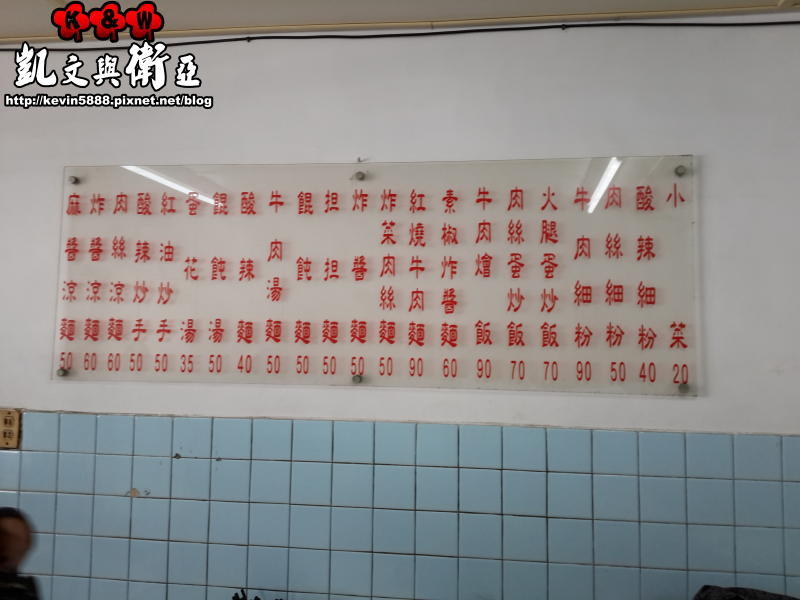 K&W
凱文與衛亞
http://kevin5888.pixnet.net/blog
小菜 20
酸辣細粉 40
肉絲細粉 50
牛肉細粉 90
火腿蛋炒飯 70
肉絲蛋炒飯 70
牛肉燴飯 90
素椒炸醬麵 60
紅燒牛肉麵 90
炸菜肉絲麵 50
炸醬麵 50
担担麵 50
餛飩麵 50
牛肉湯麵 50
酸辣麵 40
餛飩湯 50
蛋花湯 35
紅油炒手 50
酸辣炒手 50
肉絲涼麵 60
炸醬涼麵 60
麻醬涼麵 50